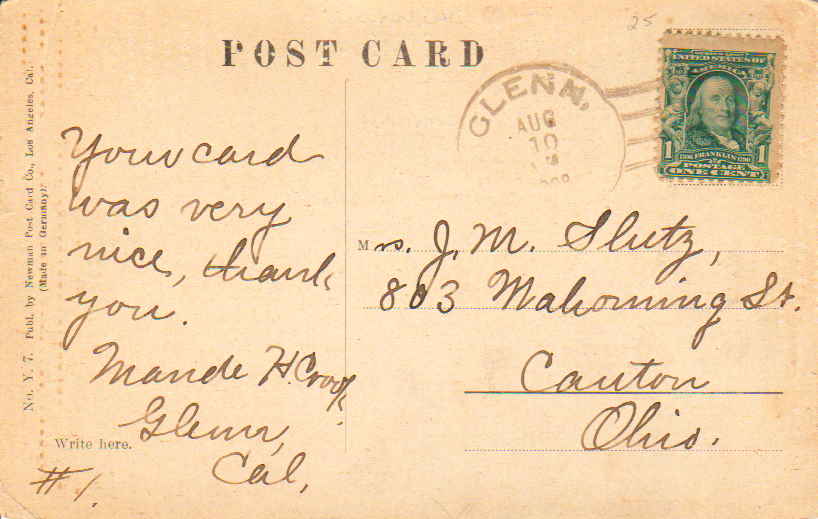 25
POST CARD
GLENN,
AUG
10
UNITED STATES OF
AMERICA
1706 FRANKLIN 1790
1 POSTAGE 1
ONE CENT
No. Y. 7. Publ. by Newman Post Card Co., Los Angeles, Cal.
(Made in Germany)
Your card
was very
nice, thank
you.
Maude H. Crook
Glenn,
Cal,
Write here.
# 1.
Mrs. J. M. Slutz,
803 Mahoming St.
Canton
Ohio.